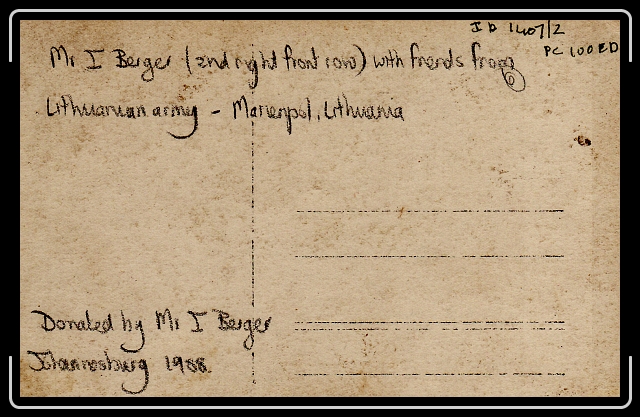 JD 1407/2
PC 100ED
Mr I Berger (2nd right front row) with friends from
Lithuanian army - Marienpol, Lithuania
Donated by Mr I Berger
Johannesburg 1988.